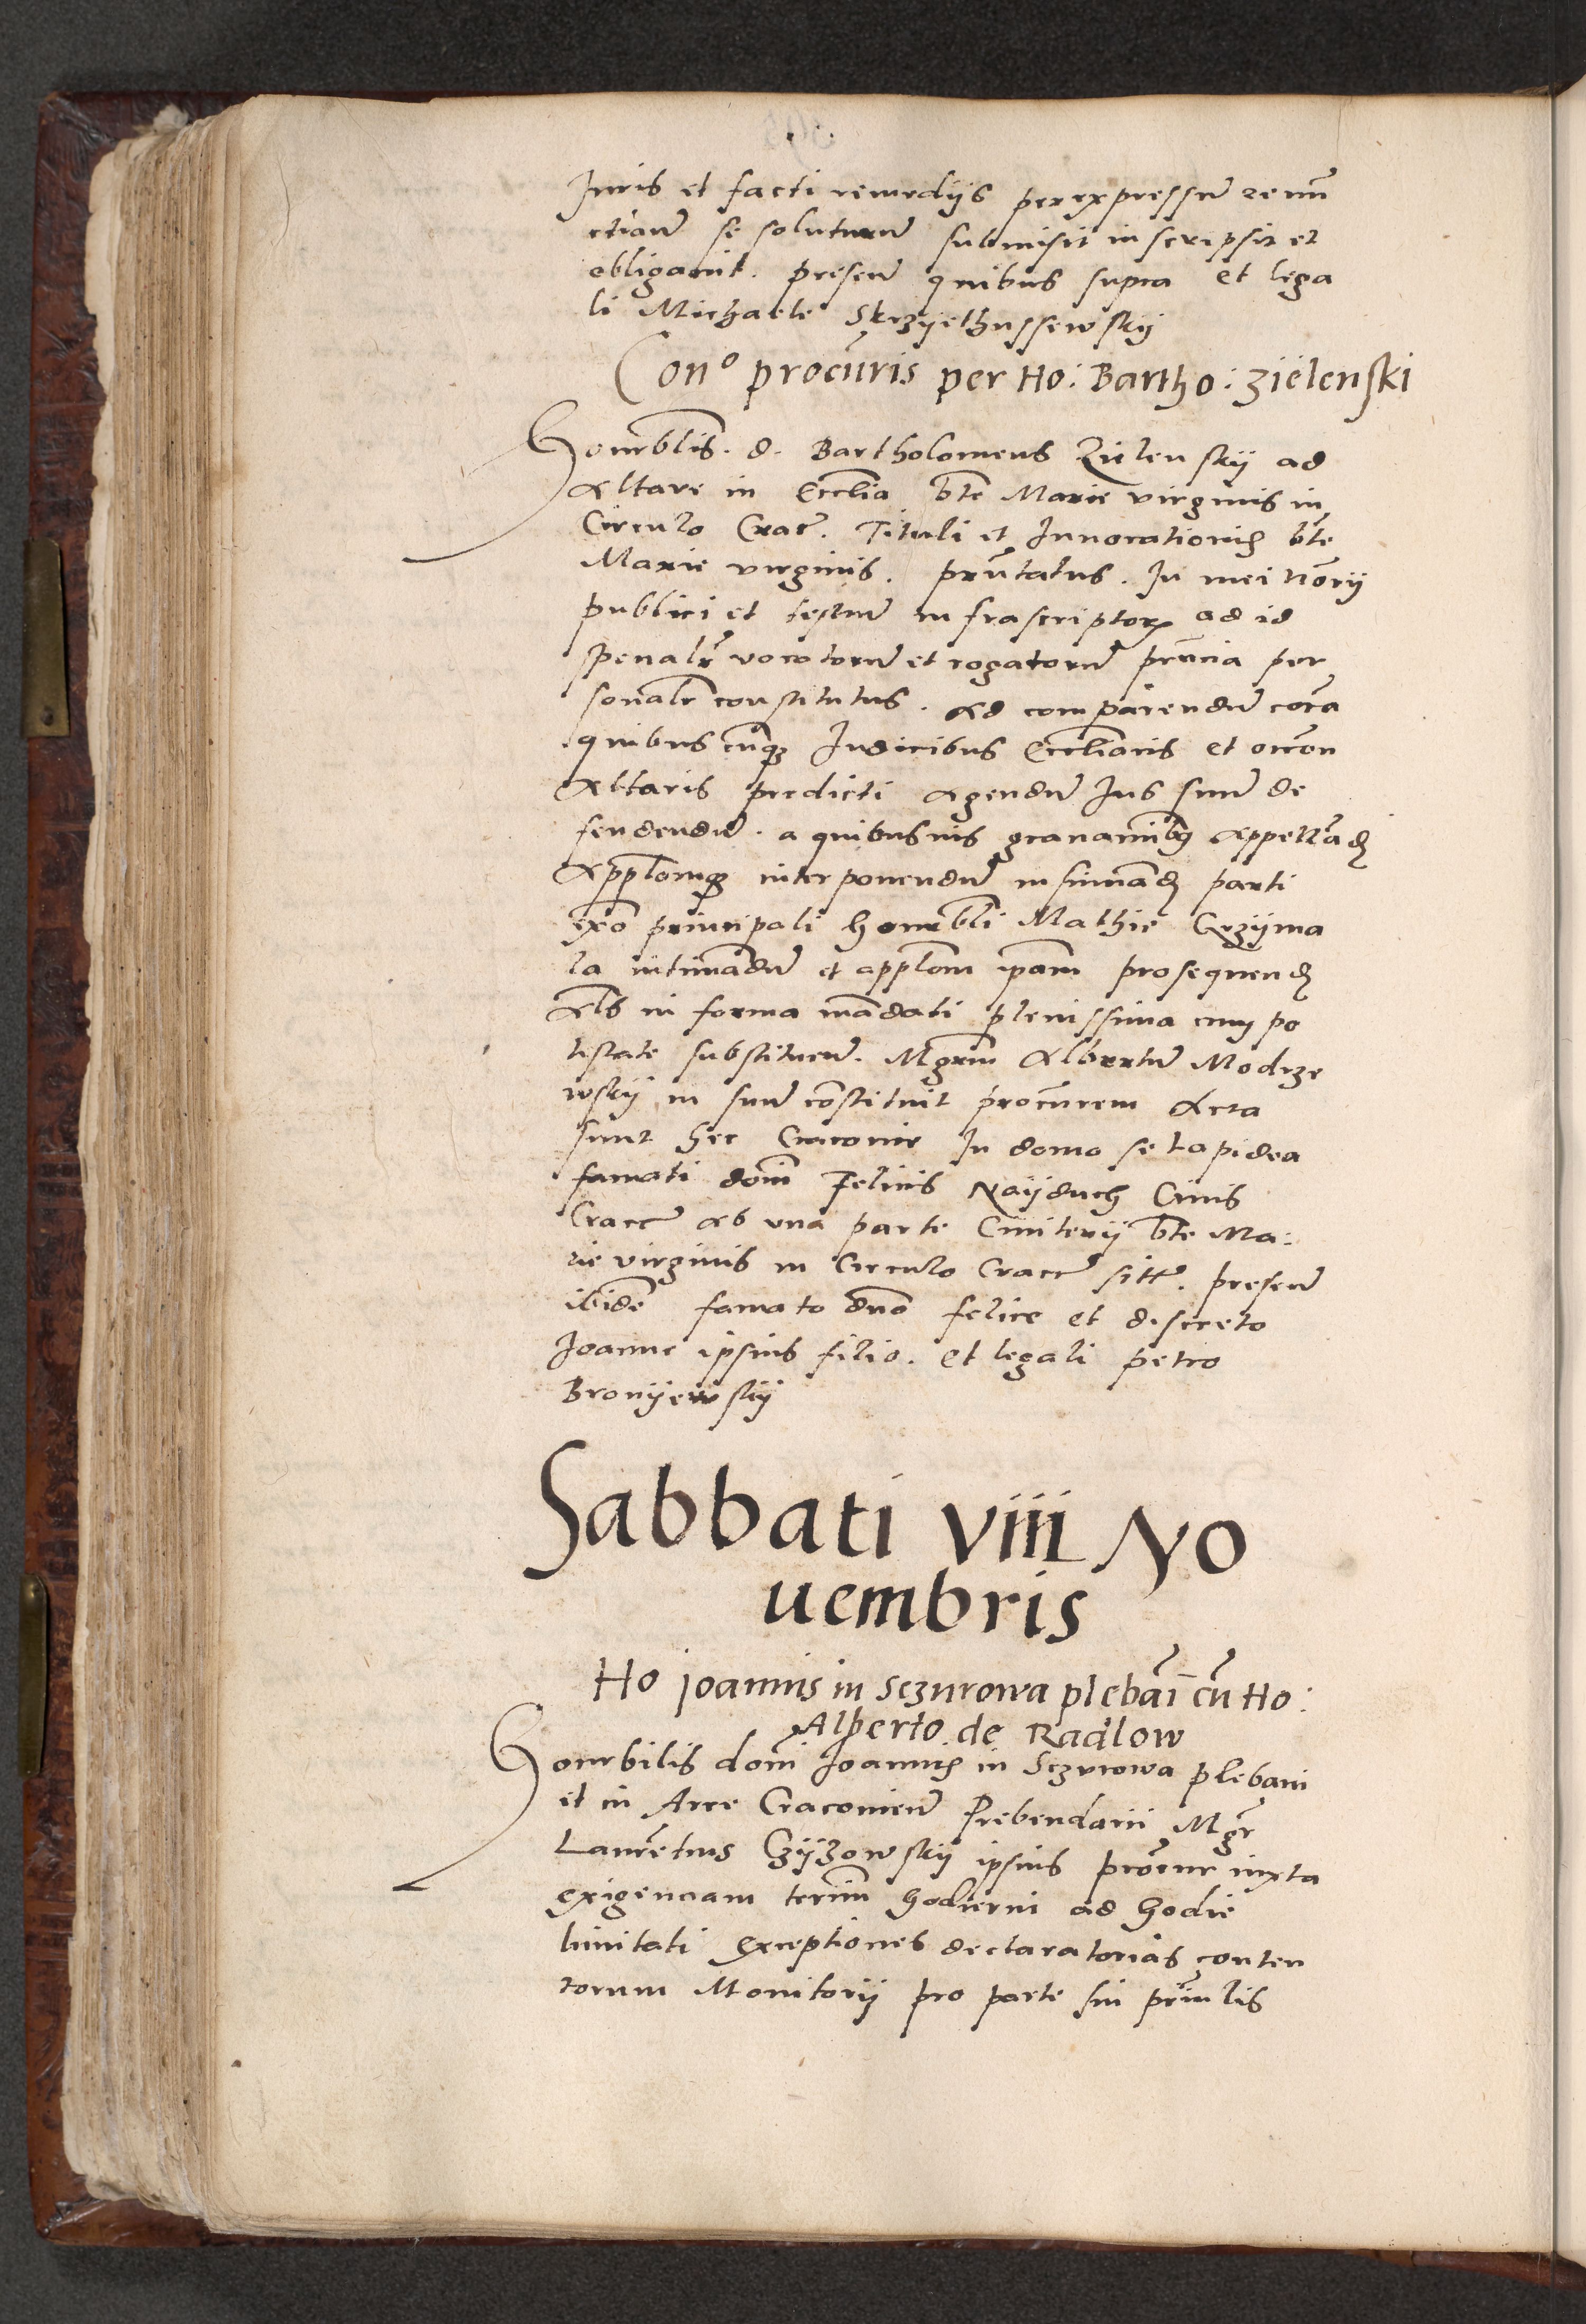 Iuris et facti remedijs per expressum renun
ctiauit se soluturum submisit inscripsit et
obligauit. presen quibus supra et lega
li Michaele Skrzijethussewskij
Con° procuris per Ho: Bartho: zielenski
Honrblis. d. Bartholomeus Zielenskij ad
Altare in Ecclia bte Marie virginis in
Circulo Crac. Tituli et Innocationis bte
Marie virginis. prntatus. In mei Norij
publici et testium infrascriptor ad id
spenalr vocatorum et rogatorum prncia per
sonalr constitutus. Ad comparendum cora
quibuscunq Iudicibus Eccliacis et occon
Altaris predicti agendum Ius suum de
fendendum. a quibusuis grauaminibq Appelland
Applonesq interponendum insinuand parti
exo principali honrbli Mathie Grzijma
la intimandum et applom ipam prosequend
Als in forma mandati plenissima cum po
testate substituen. Mgrm Albertum Modrze
wskij in suum constituit procurem Acta
sunt hec Cracouie In domo se lapidea
famati domi Felicis Naijduch Ciuis
Cracc ab una parte Cmiterij bte Ma:
rie virginis in Circulo Cracc sitt. presen
ibide famato dno felice et discreto
Joanne ipsius filio. et legali petro
Bronijewskij
Sabbati viii No
uembris
Ho joannis in Sczurowa plebani cu Ho:
Alberto de Radlow
Honrbilis domi Joannis in Sczurowa plebani
et in Arce Cracouien Prebendarii Mgr
Laurentius Czijzowskij ipsius procur iuxta
exigenciam termini hodierni ad hodie
limitati exceptiones declaratorias conten
torum Monitorij pro parte sui prinlis